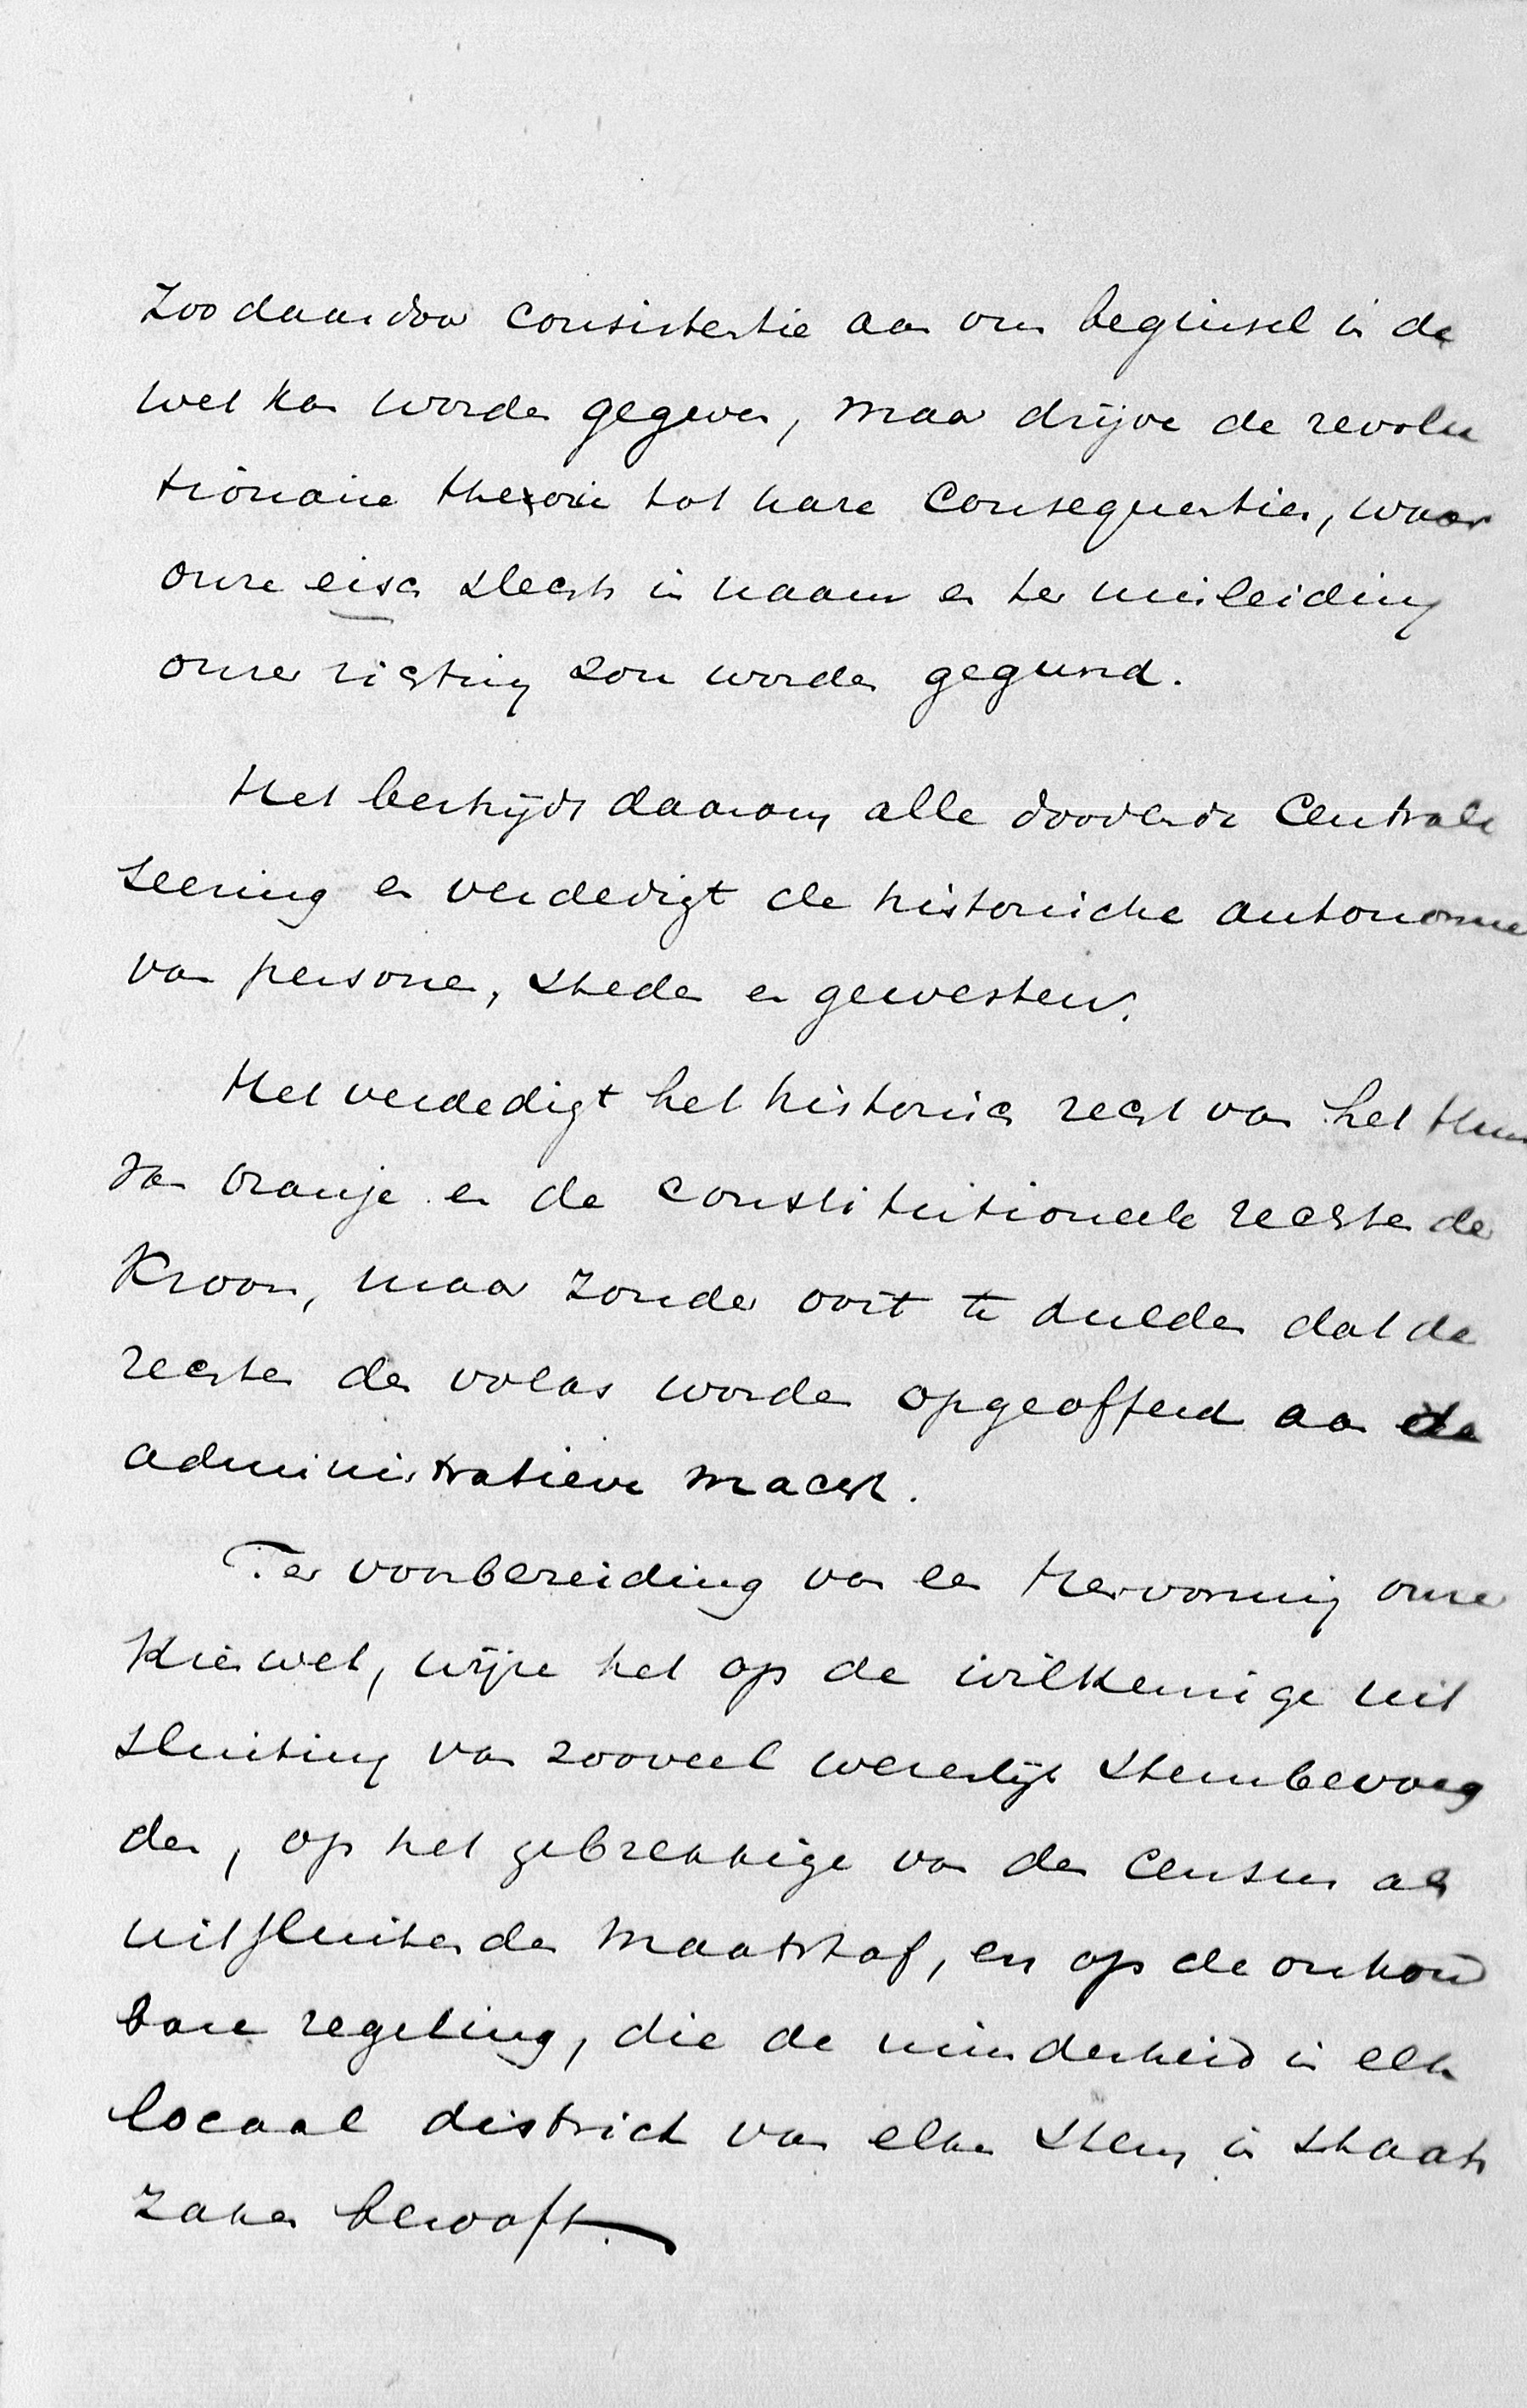 Zoo daardoor consistentie aan ons beginsel in de
wet kan worden gegeven, maar drijve de revolu
tionaire theorie tot hare consequentien, waar
onze eisch slechts in naam en ter misleiding
onzer richting zou worden gegund.
Het bestrijdt daarom alle doodende Centrali
seering en verdedigt de historische autonomie
van personen, steden en gewesten.
Het verdedigt het historisch recht van het Huis
van Oranje en de constitutioneele rechten der
Kroon, maar zonder ooit te dulden dat de
rechten des volks worden opgeofferd aan de
administratieve macht.
Ter voorbereiding van een Hervorming onzer
Kieswet, wijze het op de willekeurige uit
sluiting van zooveel wezenlijk stembevoeg
den, op het gebrekkige van den census als
uitsluitenden maatstaf, en op de onhoud
bare regeling, die de minderheid in elk
locaal district van elke stem in staats
zaken berooft.